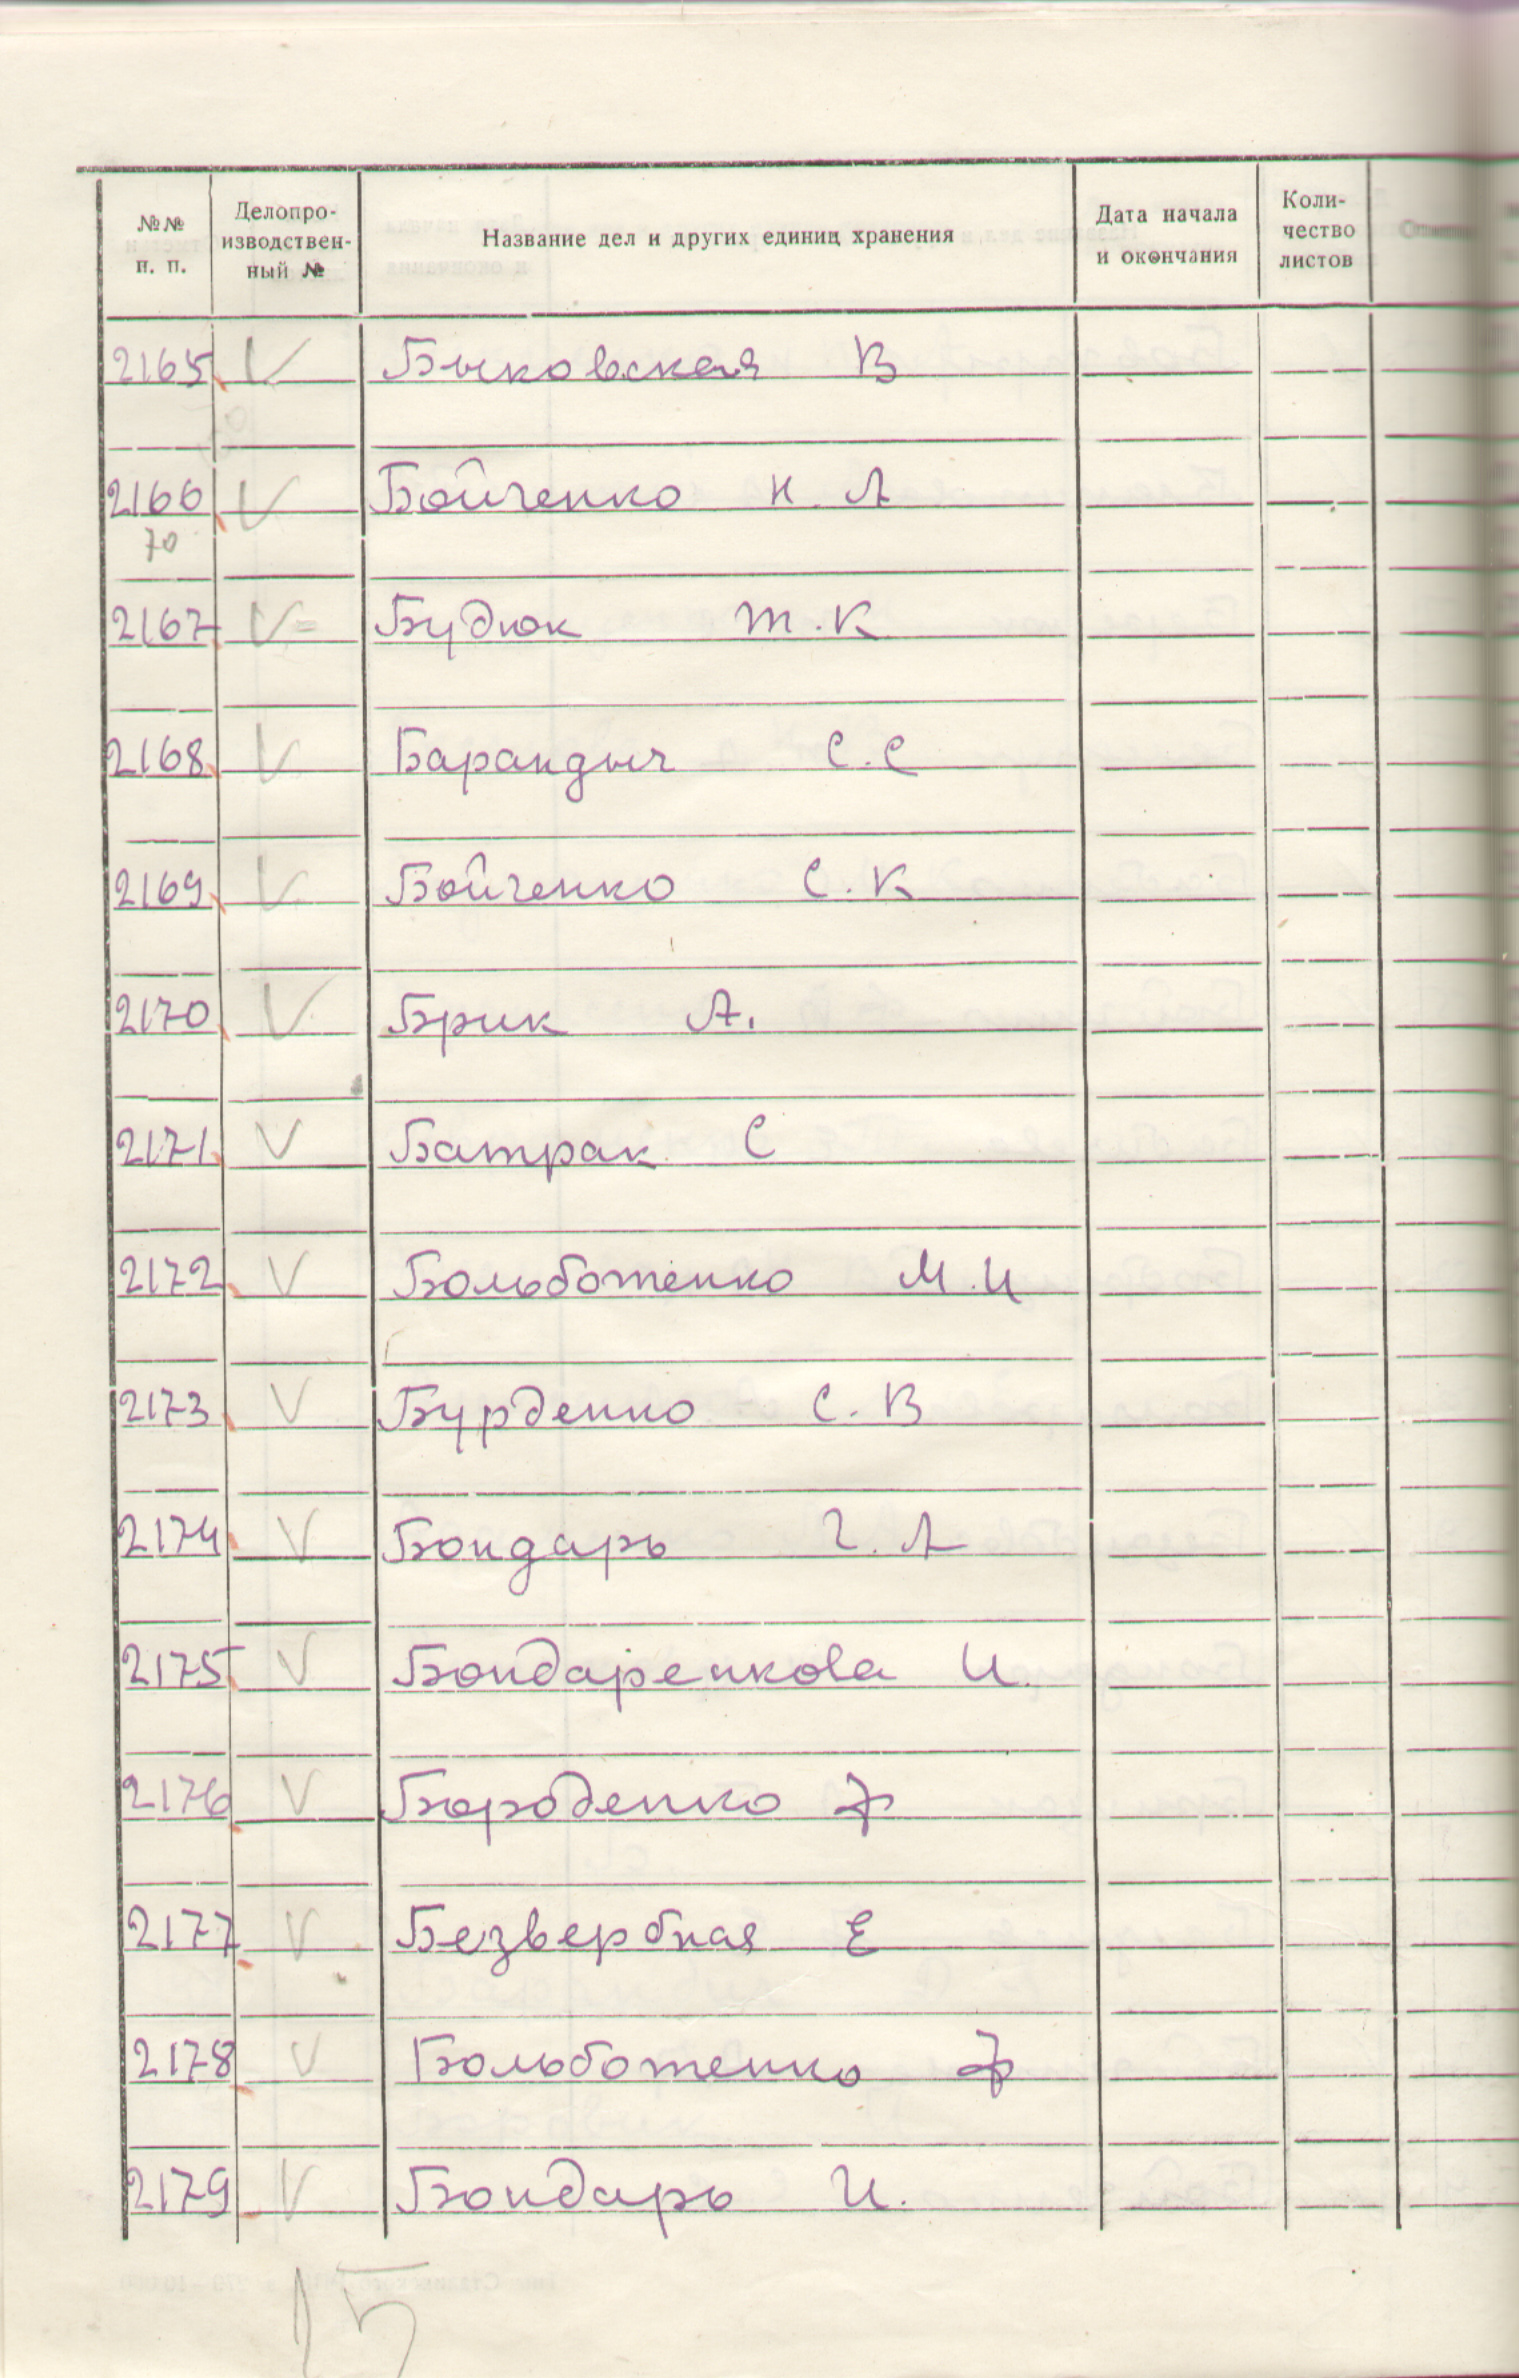 №№ п. п. Делопроизводственный № Название дел и других единиц хранения Дата начала и окончания Количество листов
2165 V Быковская В
2166 V Бойченко Н. А
70
2167 V Будюк Т. К
2168 V Барандыч С. С
2169 V Бойченко С. К
2170 V Брик А.
2171 V Батрак С
2172 V Больботенко М. И
2173 V Бурденко С. В
2174 V Бондарь Г. А
2175 V Бондаренкова И.
2176 V Бороденко Ф
2177 V Безвербная Е
2178 V Больботенко Ф
2179 V Бондарь И.
15